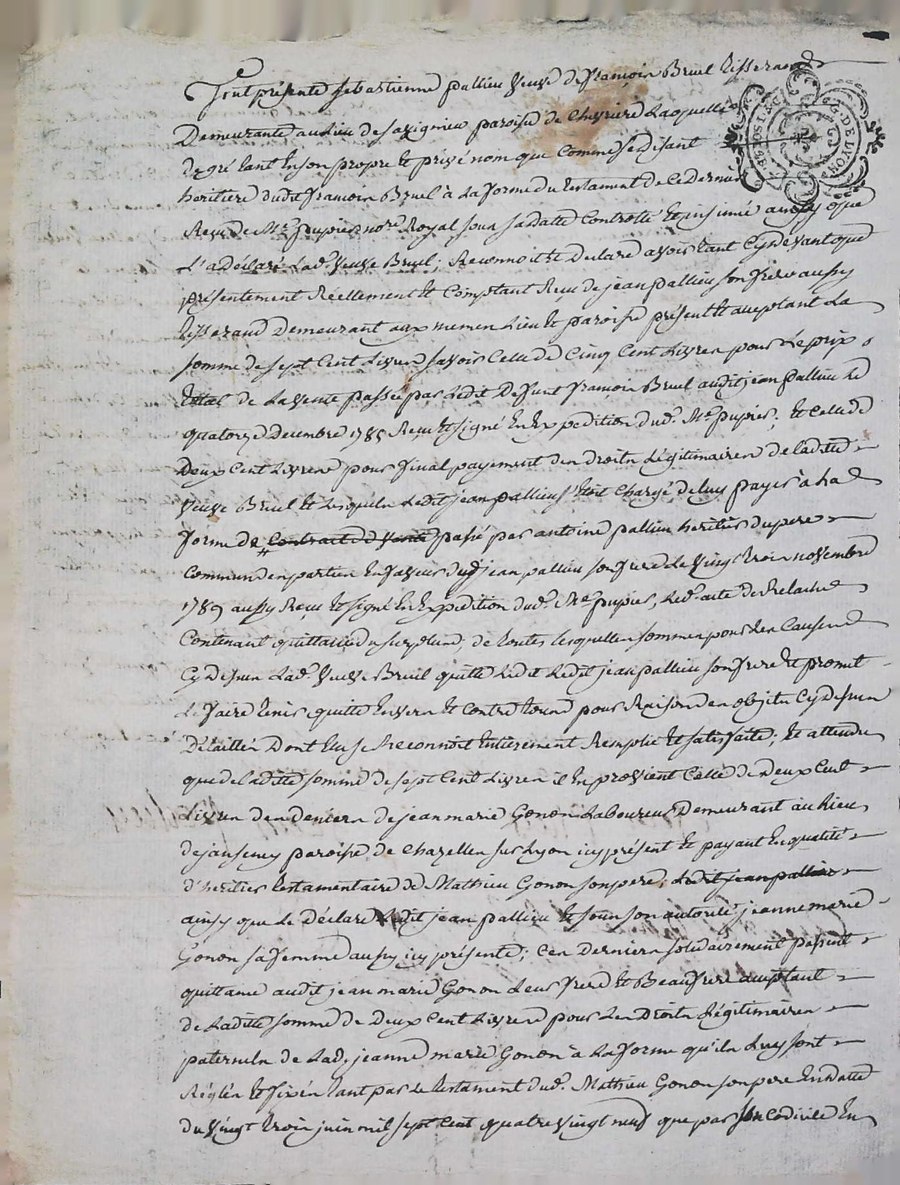 fut présente Sebastienne pallieu veuve de françois Bruel tisserand
Demeurante au lieu de savignieu paroisse de Chevriere Laquelle
de gré tant en son propre et privé nom que comme se disant
heritiere dudit françois Bruel à la forme du testament de ce Dernier
Recu de Me pupier nore Royal sous sa datte Controllé et insinué aussy que
L'a déclaré Lade veuve Bruel; Reconnoit et Declare avoir tant Cy devant que
présentement Réellement et Comptant Recu de jean pallieu son frere aussy
tisserand Demeurant aux memes Lieu et paroisse présent et acceptant La
somme de sept Cent Livres savoir Celle de Cinq Cent Livres pour Le prix
total de La vente passée par Ledit Defunt françois Bruel audit jean pallieu Le
quatorze Decembre 1785 Recu et signé en Expedition dud. Me pupier, et Celle de
Deux Cent Livres pour final payement des droits Légitimaires de laditte
veuve Bruel et Lesquels Ledit jean pallieu s'étoit Chargé de luy payer à la
forme de Contrat de vente passé par antoine pallieu heritier du pere
Commun des parties en faveur dudt jean pallieu son frere Le vingt trois novembre
1789 aussy Recu et signé en Expedition dud. Me pupier, Led. acte de Relache
Contenant quittance du surplus; de toutes lesquelles sommes pour les Causes
Cy Dessus Lad. veuve Bruel quitte Ledit Ledit jean pallieu son frere et promet
Le faire tenir quitte envers et Contre tous pour Raison des objets Cy dessus
Détaillés Dont elle se Reconnoit entierement Remplie et satisfaite; et attendu
que de laditte somme de sept Cent Livres il en provient Celle de Deux Cent
Livres des deniers de jean marie Gonon Laboureur Demeurant au Lieu
de janseney paroisse de Chazelles sur Lyon icy présent et payant en qualité
d'heritier testamentaire de Mathieu Gonon son pere, Ledit jean pallieu
ainsy que Le Déclare Ledit jean pallieu et sous son autorité jeanne marie
Gonon sa femme aussy icy présente; Ces Derniers solidairement passent
quittance audit jean marie Gonon Leur frere et Beaufrere acceptant
de Laditte somme de Deux Cent Livres pour Les Droits Légitimaires
paternels de Lad. jeanne marie Gonon à La forme qu'ils Luy sont
Réglés et fixés tant par le testament dud. Mathieu Gonon son pere en datte
du vingt trois juin mil sept Cent quatre vingt neuf que par son Codicile en
G. DE LYON